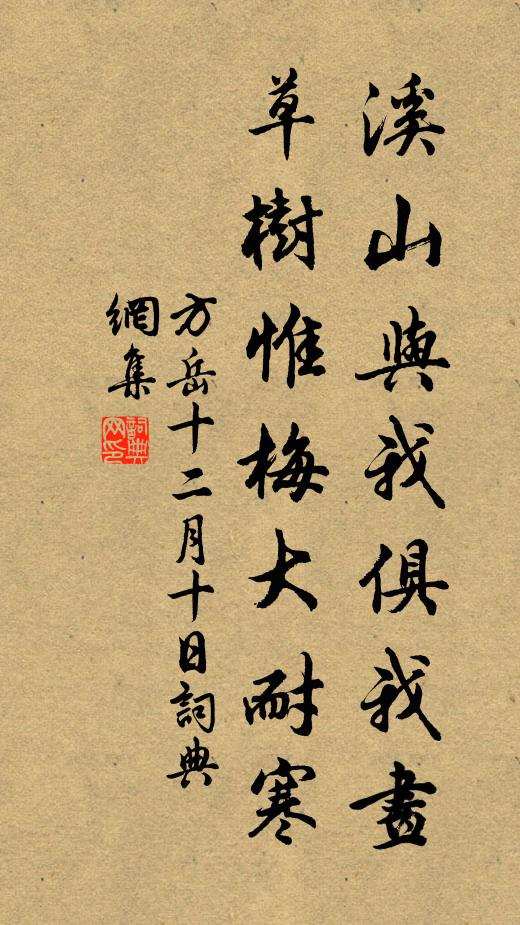 溪山與我俱我畫
草樹惟梅大耐寒
方岳十二月十日詞典
網集
詞典
网印